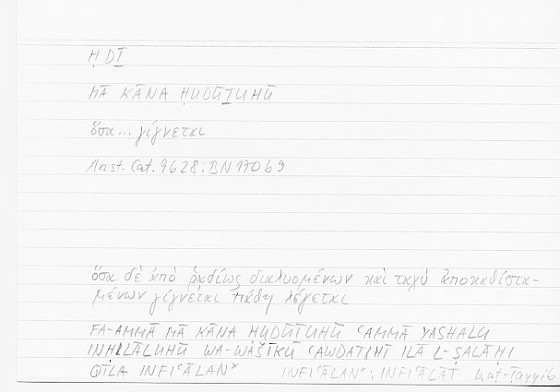 ḤDṮ
MĀ KĀNA ḤUDŪṮUHŪ
ὅσα... γίγνεται
Arist. Cat. 9b28; BN 170b9
ὅσα δὲ ἀπὸ ῥᾳδίως διαλυομένων καὶ ταχὺ ἀποκαθιστα-
μένων γίγνεται πάθη λέγεται
FA-AMMĀ MĀ KĀNA ḤUDŪṮUHŪ ʿAMMĀ YASHALU
INḤILĀLUHŪ WA-WAŠĪKŪ ʿAWDATIHĪ ILĀ L-ṢALĀḤI
QĪLA INFIʿĀLANˣ INFIʿĀLAN : INFIʿĀLĀT Waṭ-Ṭayyib